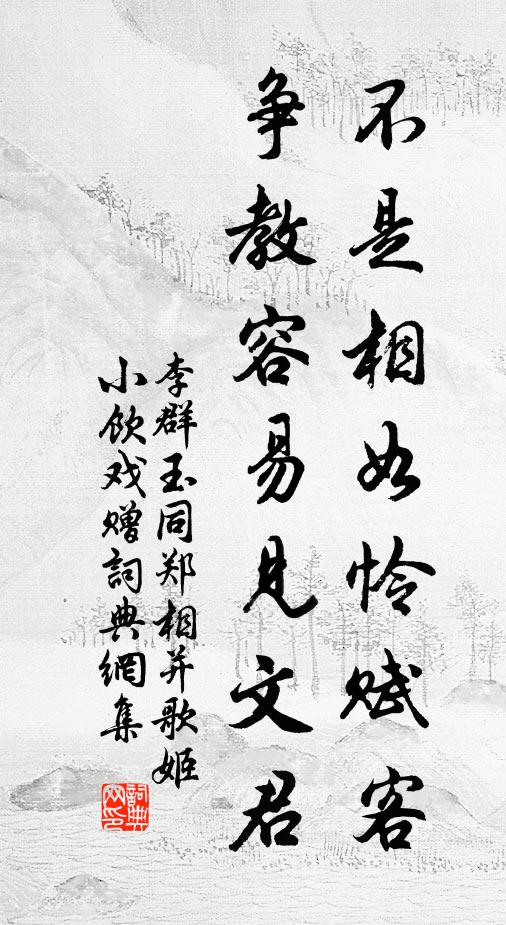 不是相如怜赋客
争教容易见文君
李群玉同郑相并歌姬
小饮戏赠詞典網集
詞典
网印